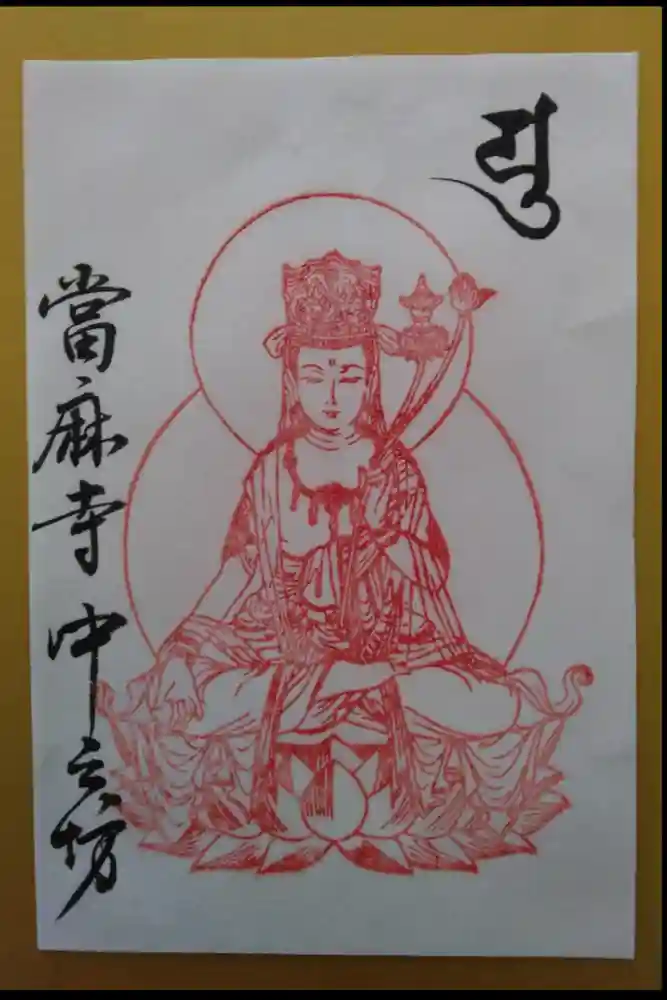 𑖧𑖲
當麻寺 中之坊